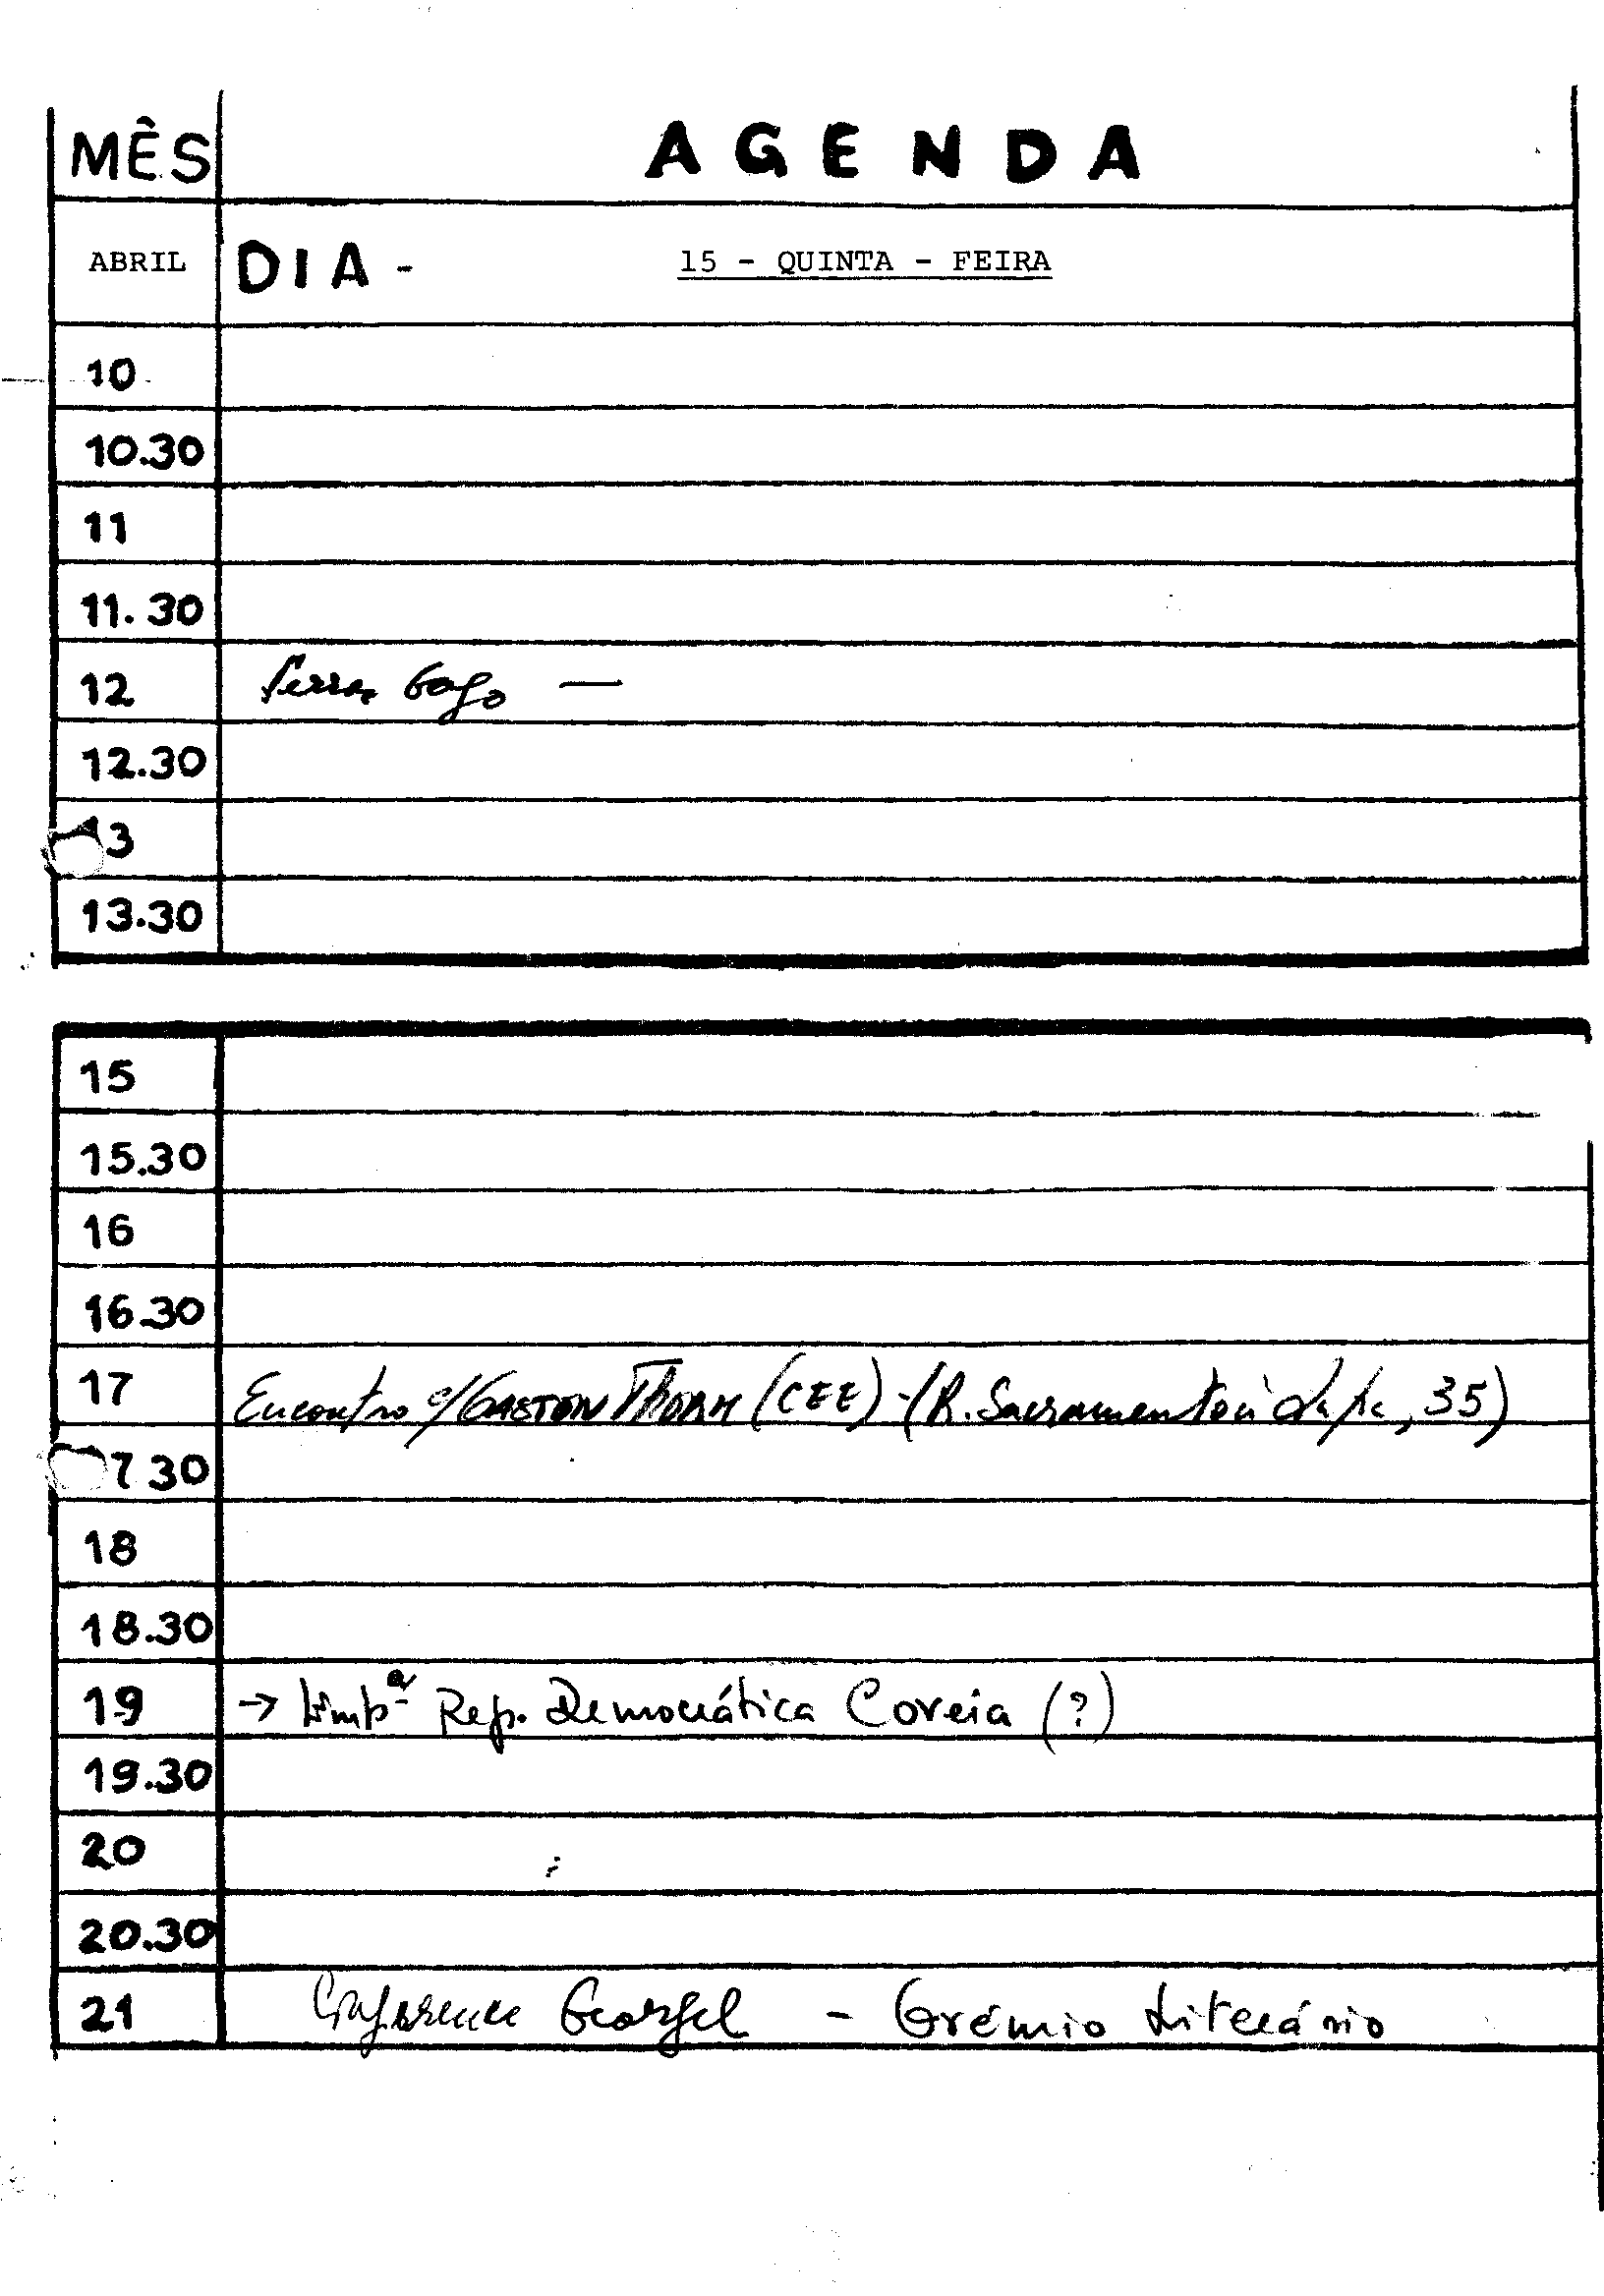 MÊS AGENDA
ABRIL DIA - 15 - QUINTA - FEIRA
10
10.30
11
11.30
12 Serra Gago —
12.30
13
13.30
15
15.30
16
16.30
17 Encontro c/ GASTON THORN (CEE) - (R. Sacramento à Lapa, 35)
7 30
18
18.30
19 → Rep. Democrática Coreia (?)
19.30
20
20.30
21 Georgel - Grémio Literário